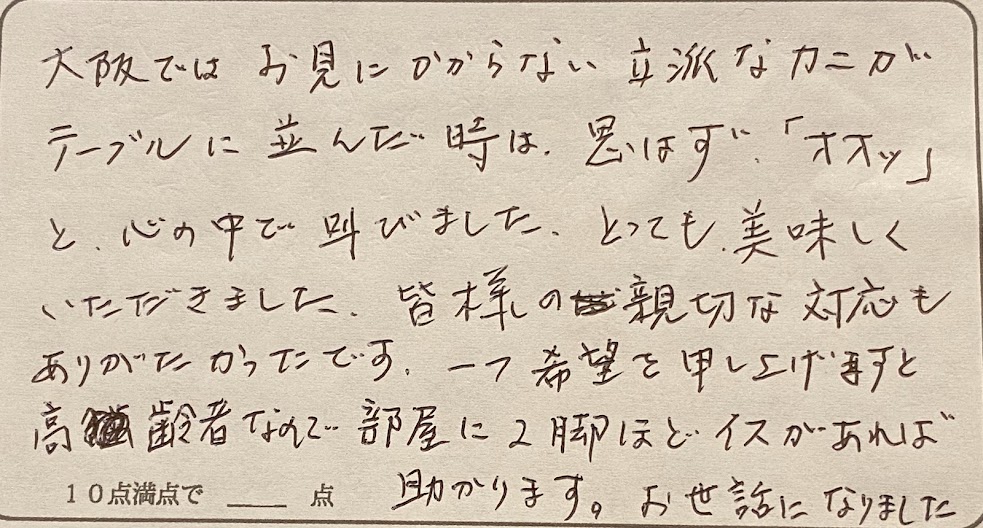 大阪では お見にかからない 立派なカニが
テーブルに 並んだ時は、思はず、「オオッ」
と、心の中で 叫びました、とっても、美味しく
いただきました、皆様の 親切な 対応も
ありがたかったです、一つ 希望を 申し上げますと
高齢者なので 部屋に 2脚ほど イスがあれば
10点満点で 点 助かります。お世話になりました